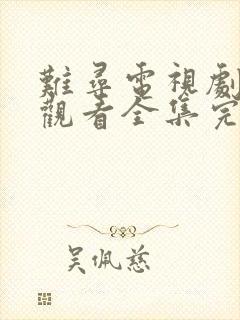 難尋電視劇
觀看全集完
吳佩慈